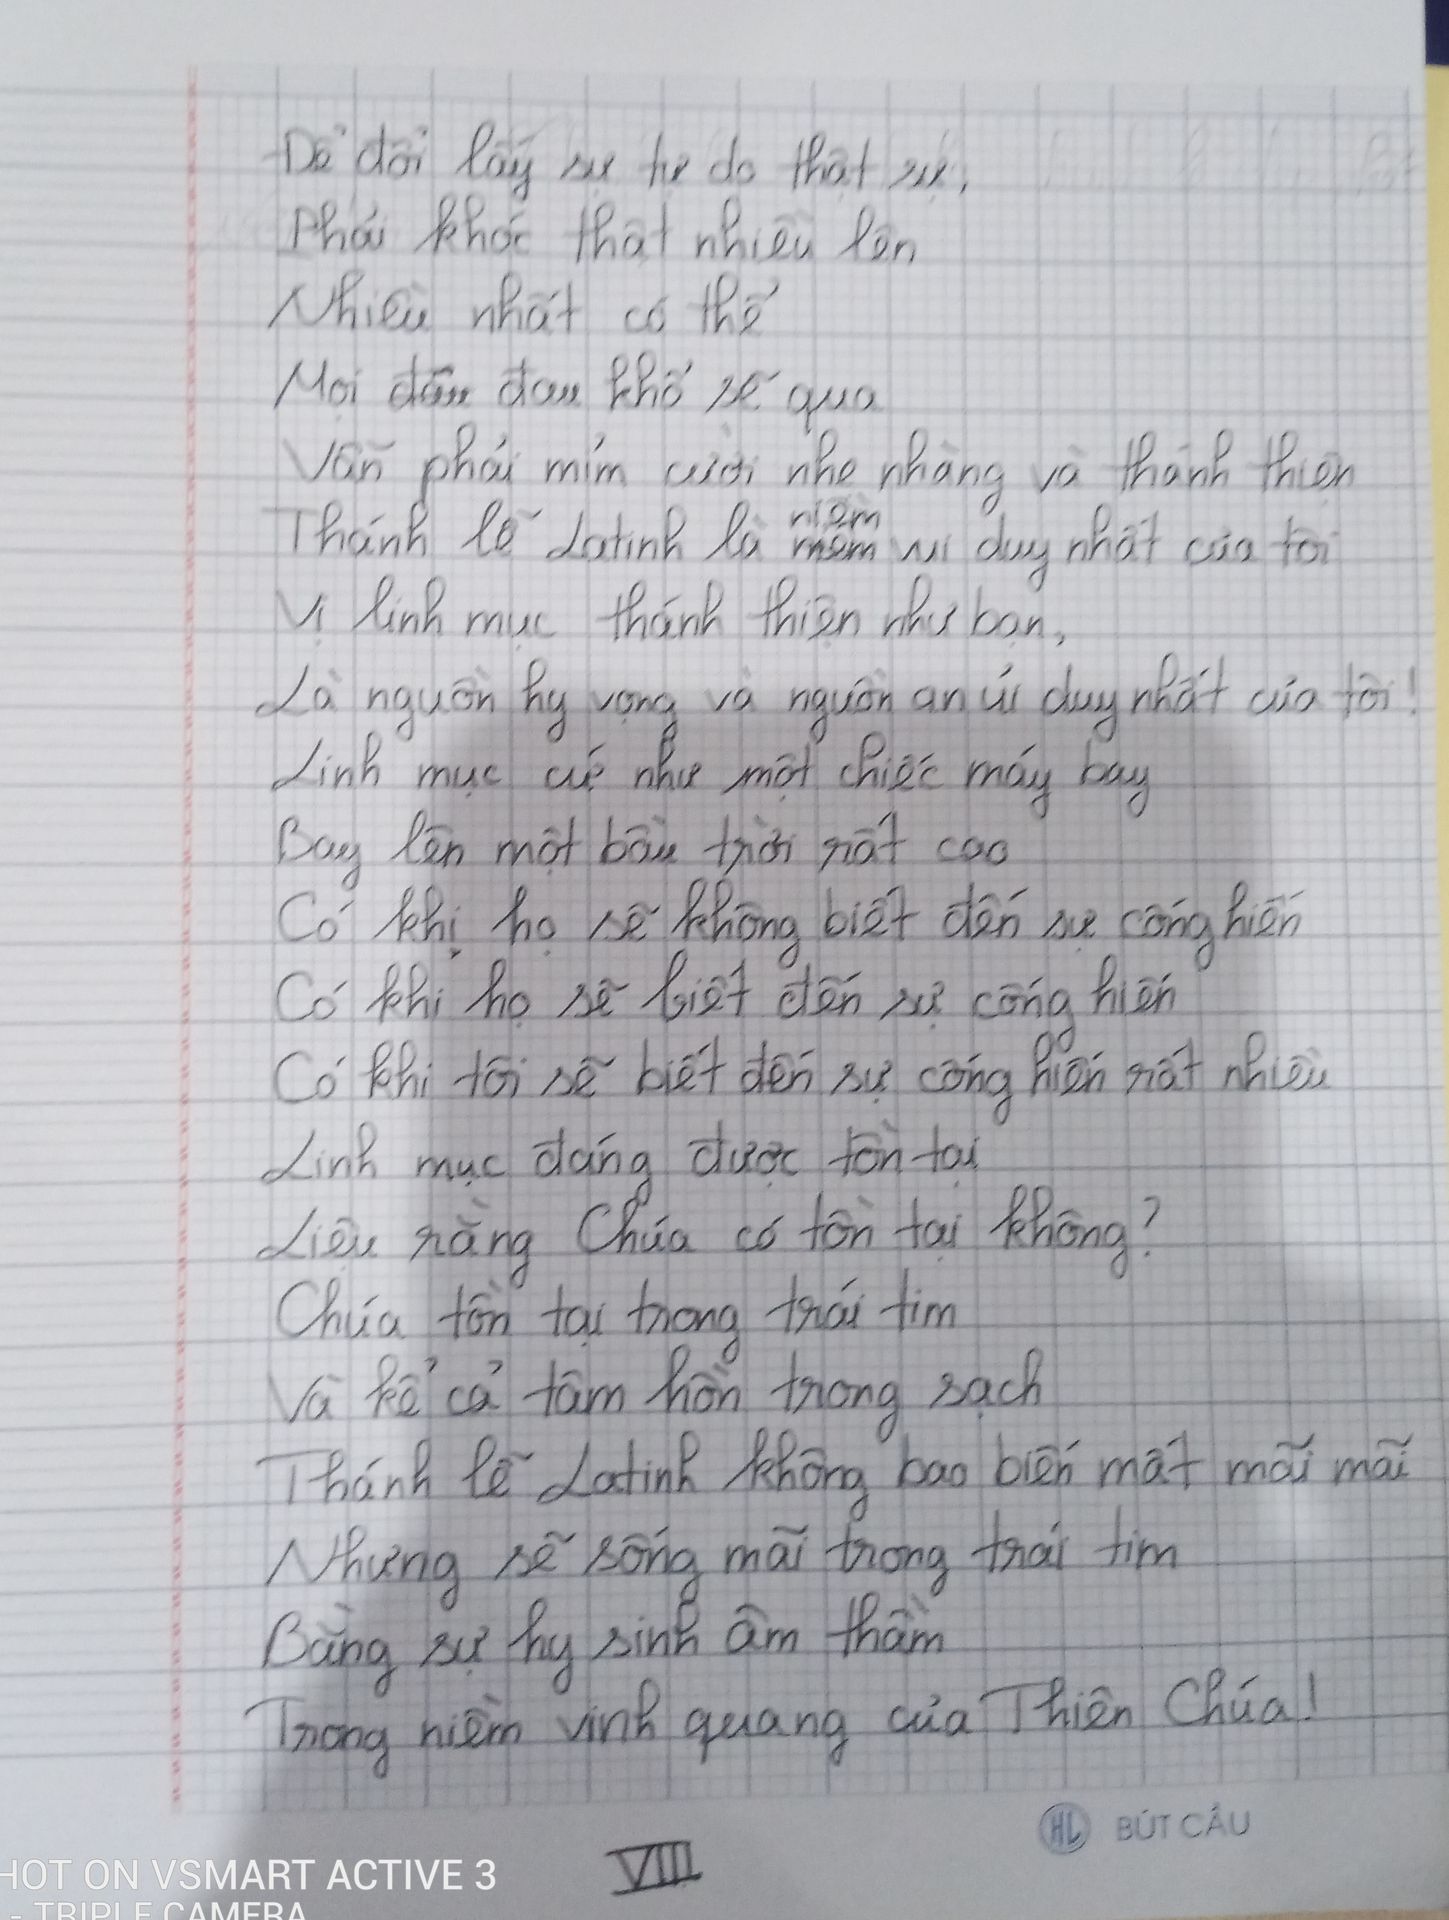 Để đổi lấy sự tự do thật sự,
Phải khóc thật nhiều lên
Nhiều nhất có thể
Mọi đau khổ sẽ qua
Vẫn phải mỉm cười nhẹ nhàng và thánh thiện
Thánh lễ Latinh là niềm vui duy nhất của tôi
Vị linh mục thánh thiện như bạn,
Là nguồn hy vọng và nguồn an ủi duy nhất của tôi!
Linh mục cứ như một chiếc máy bay
Bay lên một bầu trời rất cao
Có khi họ sẽ không biết đến sự cống hiến
Có khi họ sẽ biết đến sự cống hiến
Có khi tôi sẽ biết đến sự cống hiến rất nhiều
Linh mục đáng được tồn tại
Liệu rằng Chúa có tồn tại không?
Chúa tồn tại trong trái tim
Và kể cả tâm hồn trong sạch
Thánh lễ Latinh không bao biến mất mãi mãi
Nhưng sẽ sống mãi trong trái tim
Bằng sự hy sinh âm thầm
Trong niềm vinh quang của Thiên Chúa!
HL BÚT CÂU
VIII
HOT ON VSMART ACTIVE 3
- TRIPLE CAMERA